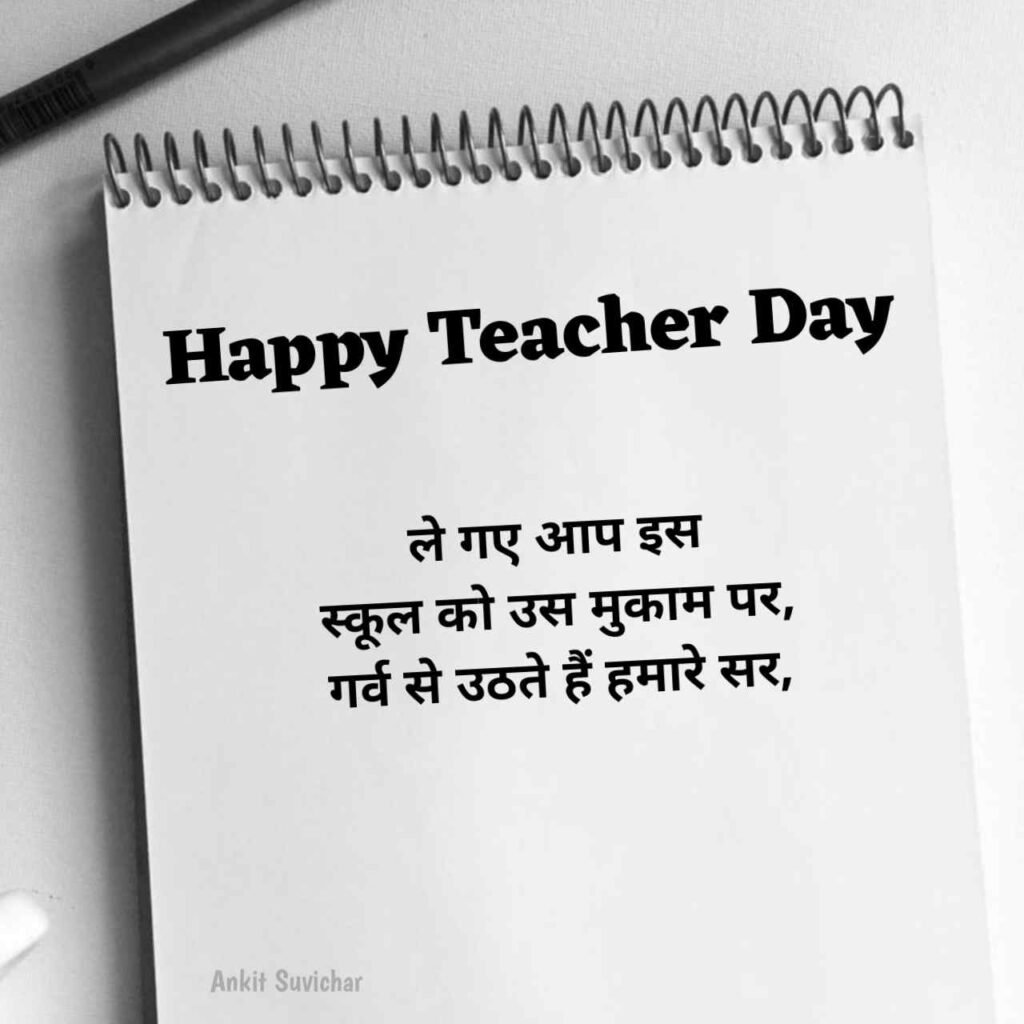 Happy Teacher Day
ले गए आप इस
स्कूल को उस मुकाम पर,
गर्व से उठते हैं हमारे सर,
Ankit Suvichar